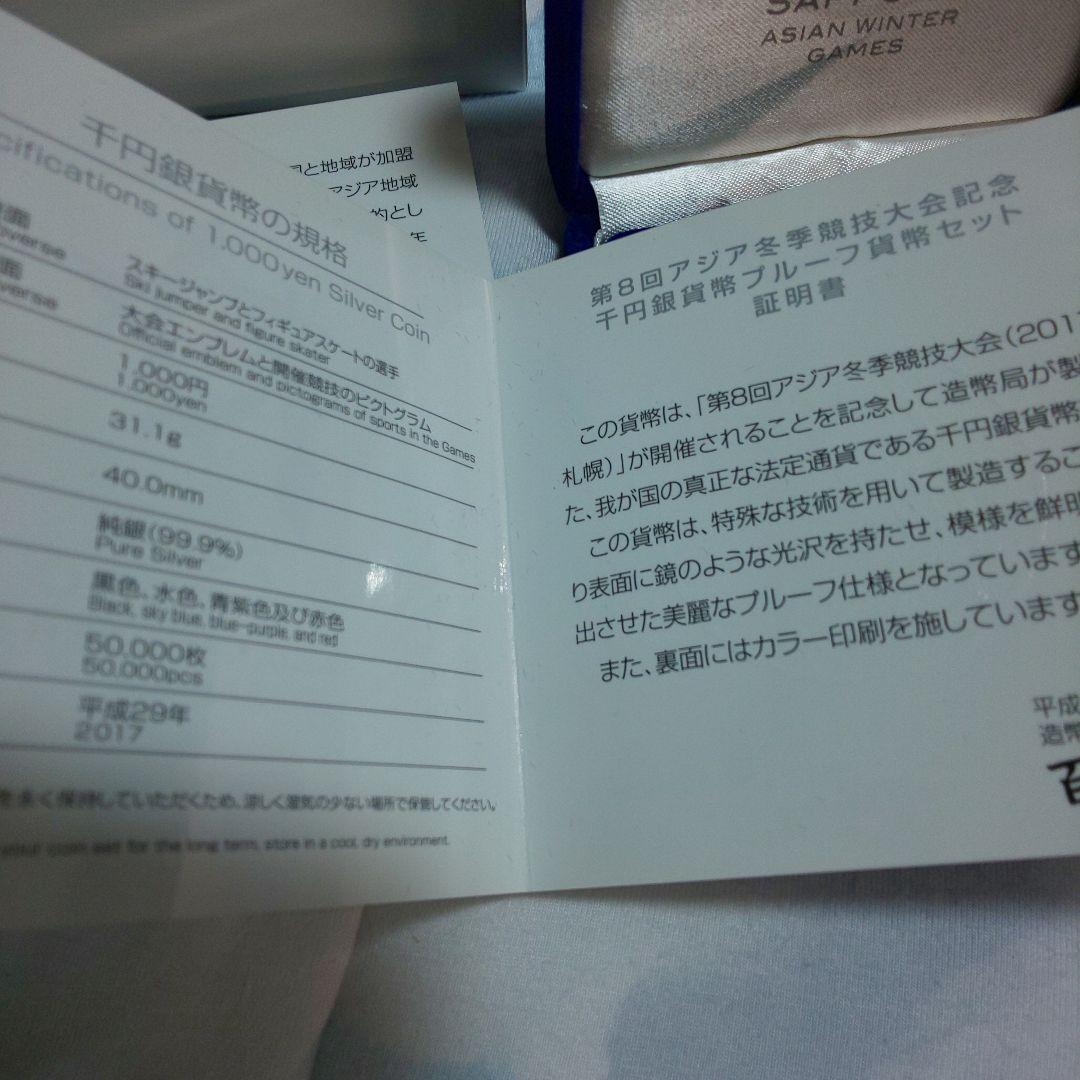 SAPPO
ASIAN WINTER
GAMES
と地域が加盟
アジア地域
的とし
年
千円銀貨幣の規格
cifications of 1,000yen Silver Coin
面
verse
スキージャンプとフィギュアスケートの選手
Ski jumper and figure skater
面
verse
大会エンブレムと開催競技のピクトグラム
Official emblem and pictograms of sports in the Games
1,000円
1,000yen
31.1g
40.0mm
純銀(99.9%)
Pure Silver
黒色、水色、青紫色及び赤色
Black, sky blue, blue-purple, and red
50,000枚
50,000pcs
平成29年
2017
を永く保持していただくため、涼しく湿気の少ない場所で保管してください。
your coin set for the long term, store in a cool, dry environment.
第8回アジア冬季競技大会記念
千円銀貨幣プルーフ貨幣セット
証明書
この貨幣は、「第8回アジア冬季競技大会(2017
札幌)」が開催されることを記念して造幣局が製
た、我が国の真正な法定通貨である千円銀貨幣
この貨幣は、特殊な技術を用いて製造するこ
り表面に鏡のような光沢を持たせ、模様を鮮明
出させた美麗なプルーフ仕様となっています
また、裏面にはカラー印刷を施しています
平成
造幣
百